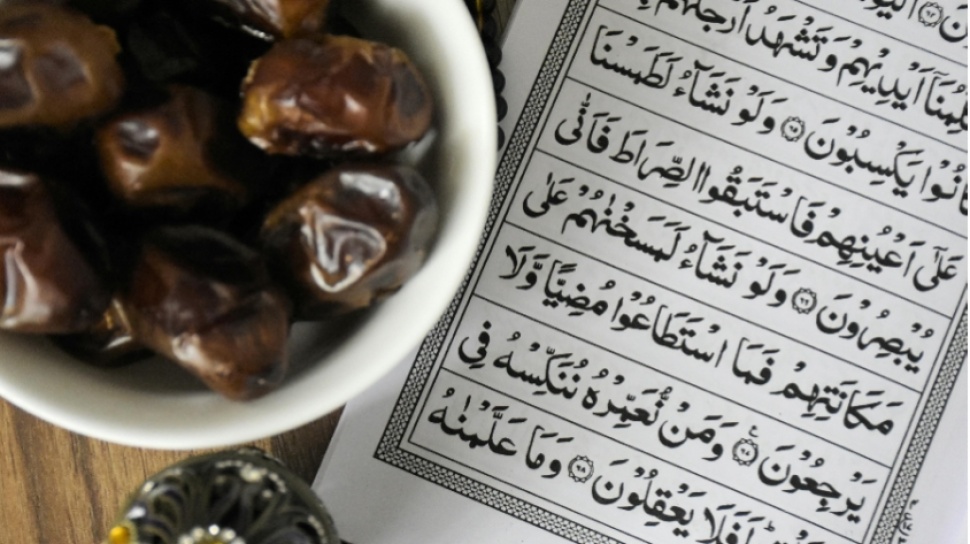 اَيْدِيْهِمْ وَتَشْهَدُ اَرْجُلُهُمْ
كَانُوْا يَكْسِبُوْنَ ﴿٦٥﴾ وَلَوْ نَشَآءُ لَطَمَسْنَا
عَلٰٓى اَعْيُنِهِمْ فَاسْتَبَقُوا الصِّرَاطَ فَاَنّٰى
يُبْصِرُوْنَ ﴿٦٦﴾ وَلَوْ نَشَآءُ لَمَسَخْنٰهُمْ عَلٰى
مَكَانَتِهِمْ فَمَا اسْتَطَاعُوْا مُضِيًّا وَّلَا
يَرْجِعُوْنَ ﴿٦٧﴾ وَمَنْ نُّعَمِّرْهُ نُنَكِّسْهُ فِى
اَفَلَا يَعْقِلُوْنَ ﴿٦٨﴾ وَمَا عَلَّمْنٰهُ